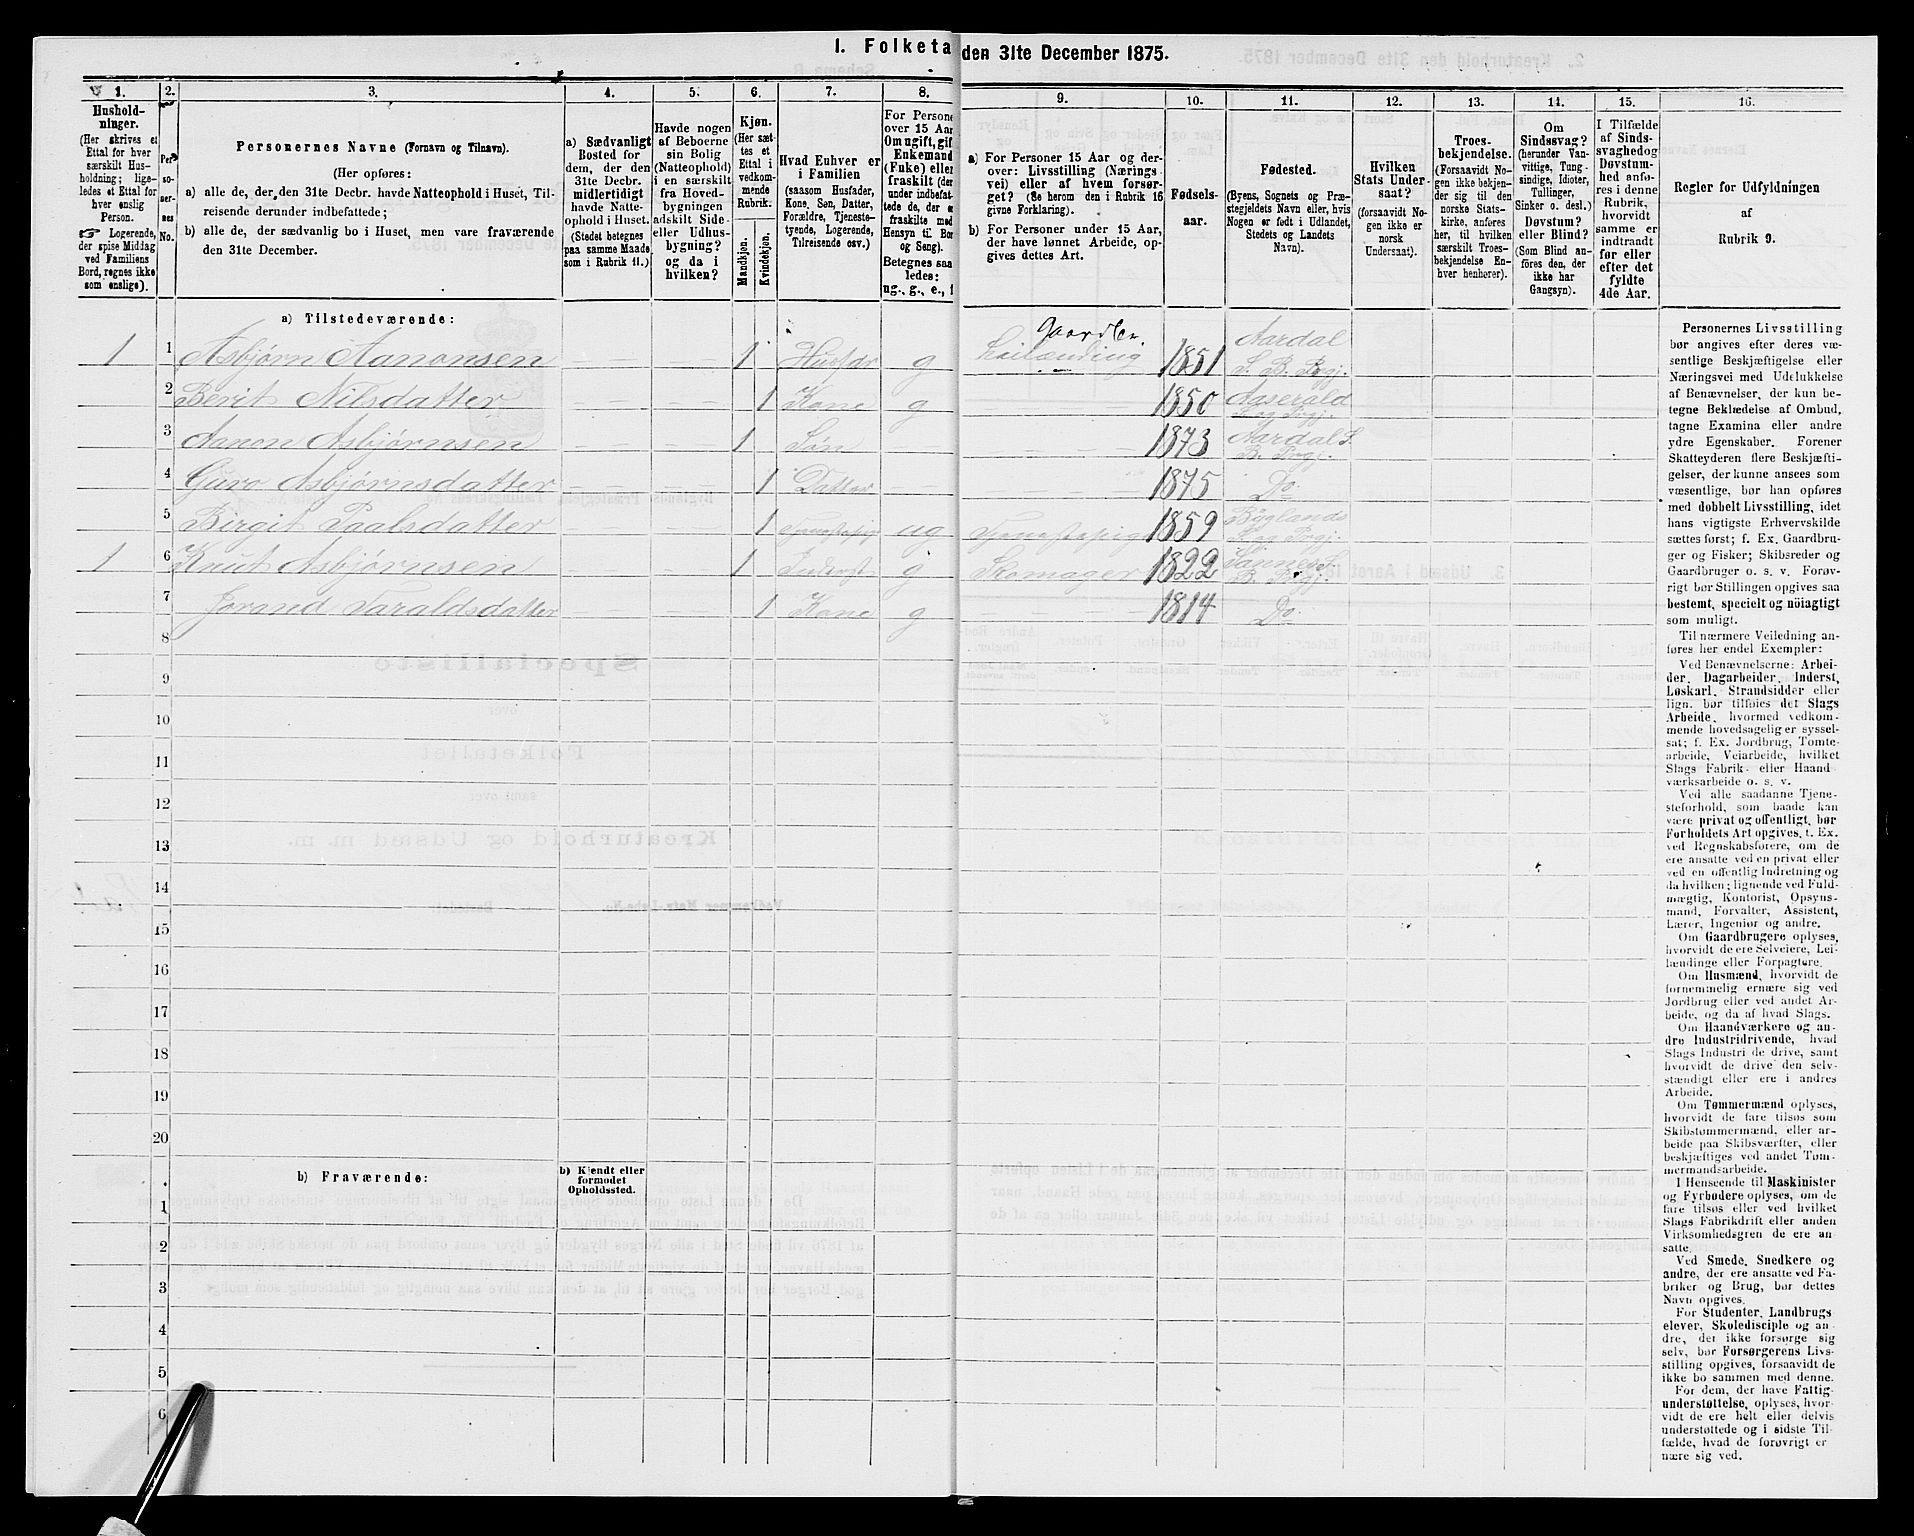 1. Folketa den 31te December 1875.
1. 2. 3. 4. 5. 6. 7. 8. 9. 10. 11. 12. 13. 14. 15. 16.
Hushold-
ninger.
(Her skrives et
Ettal for hver
særskilt Hus-
holdning; lige-
ledes et Ettal for
hver enslig
Person.
☞ Logerende,
der spise Middag
ved Familiens
Bord, regnes ikke
som enslige).
Per-
so-
ner-
nes
No.
Personernes Navne (Fornavn og Tilnavn).
(Her opføres:
a) alle de, der den 31te Decbr. havde Natteophold i Huset, Til-
reisende derunder indbefattede;
b) alle de, der sædvanlig bo i Huset, men vare fraværende
den 31te December.
a) Sædvanligt
Bosted for
dem, der den
31te Decbr.
midlertidigt
havde Natte-
ophold i Huset.
(Stedet betegnes
paa samme Maade
som i Rubrik 11.)
Havde nogen
af Beboerne
sin Bolig
(Natteophold)
i en særskilt
fra Hoved-
bygningen
adskilt Side-
eller Udhus-
bygning?
og da i
hvilken?
Kjøn.
(Her sæt-
tes et
Ettal i
vedkom-
mende
Rubrik.
Mandkjøn.
Kvindekjøn.
Hvad Enhver er
i Familien
(saasom Husfader,
Kone, Søn, Datter,
Forældre, Tjeneste-
tyende, Logerende,
Tilreisende osv.)
For Persone
over 15 Aar
Om ugift, gif
Enkemand
(Enke) eller
fraskilt (der
under indbefat-
tede de, der e
fraskilte med
Hensyn til Bor
og Seng).
Betegnes saa
ledes:
ug., g., e., f
a) For Personer 15 Aar og der-
over: Livsstilling (Nærings
vei) eller af hvem forsør-
get? (Se herom den i Rubrik 16
givne Forklaring).
b) For Personer under 15 Aar,
der have lønnet Arbeide, op-
gives dettes Art.
Fødsels-
aar.
Fødested.
(Byens, Sognets og Præ-
stegjeldets Navn eller, hvis
Nogen er født i Udlandet,
Stedets og Landets
Navn).
Hvilken
Stats Under-
saat?
(forsaavidt No-
gen ikke er
norsk
Undersaat).
Troes-
bekjendelse.
(Forsaavidt No-
gen ikke bekjen-
der sig til den
norske Stats-
kirke, anføres
her, til hvilken
særskilt Troes-
bekjendelse En-
hver henhører).
Om
Sindssvag?
(herunder Van-
vittige, Tung-
sindige, Idioter,
Tullinger,
Sinker o. desl.)
Døvstum?
eller Blind?
(Som Blind an-
føres den, der
ikke har
Gangsyn).
I Tilfælde
af Sinds-
svaghed og
Døvstum-
hed anfø-
res i denne
Rubrik,
hvorvidt
samme er
indtraadt
før eller
efter det
fyldte
4de Aar.
Regler for Udfyldningen
af
Rubrik 9.
a) Tilstedeværende:
1 1 Asbjørn Aanonsen 1 g Gaardbr. Leilænding 1851 Aardal S. B. Prgj.
2 Berit Nilsdatter 1 Kone g 1850 Aaserald
3 Aanon Asbjørnsen 1 Søn 1873 Aardal S. B. Prgj.
4 Guro Asbjørnsdatter 1 Datter 1875 Do.
5 Birgit Paalsdatter 1 ug 1859 Bøglands
1 6 Knut Asbjørnsen 1 Inderst g Skomager 1822 Sannes S. B. Prgj.
7 Jorand Taraldsdatter 1 Kone g 1814 Do.
8
9
10
11
12
13
14
15
16
17
18
19
20
b) Fraværende:
b) Kjendt eller
formodet
Opholdssted.
1
2
3
4
5
6
Personernes Livsstilling
bør angives efter deres væ-
sentlige Beskjæftigelse eller
Næringsvei med Udelukkelse
af Benævnelser, der kun be-
tegne Beklædelse af Ombud,
tagne Examina eller andre
ydre Egenskaber. Forener
Skatteyderen flere Beskjæfti-
gelser, der kunne ansees som
væsentlige, bør han opføres
med dobbelt Livsstilling, idet
hans vigtigste Erhvervskilde
sættes først; f. Ex. Gaardbru-
ger og Fisker; Skibsreder og
Gaardbruger o. s. v. Forøv-
rigt bør Stillingen opgives saa
bestemt, specielt og nöiagtigt
som muligt.
Til nærmere Veiledning an-
føres her endel Exempler:
Ved Benævnelserne: Arbei-
der, Dagarbeider, Inderst,
Løskarl, Strandsidder eller
lign. bør tilføies det Slags
Arbeide, hvormed vedkom-
mende hovedsagelig er syssel-
sat; f. Ex. Jordbrug, Tomte-
arbeide, Veiarbeide, hvilket
Slags Fabrik- eller Haand
værksarbeide o. s. v.
Ved alle saadanne Tjene-
steforhold, som baade kan
være privat og offentligt, bør
Forholdets Art opgives, t. Ex.
ved Regnskabsførere, om de
ere ansatte ved en privat eller
ved en offentlig Indretning og
da hvilken; lignende ved Fuld-
mægtig, Kontorist, Opsyns-
mand, Forvalter, Assistent,
Lærer, Ingeniør og andre.
Om Gaardbrugere oplyses,
hvorvidt de ere Selveiere, Lei-
lændinge eller Forpagtere.
Om Husmænd, hvorvidt de
fornemmelig ernære sig ved
Jordbrug eller ved andet Ar-
beide, og da af hvad Slags.
Om Haandværkere og an-
dre Industridrivende, hvad
Slags Industri de drive, samt
hvorvidt de drive den selv-
stændigt eller ere i andres
Arbeide.
Om Tømmermænd oplyses,
hvorvidt de fare tilsøs som
Skibstømmermænd, eller ar-
beide paa Skibsværfter, eller
beskjæftiges ved andet Tøm-
mermandsarbeide.
I Henseende til Maskinister
og Fyrbødere oplyses, om de
fare tilsøs eller ved hvilket
Slags Fabrikdrift eller anden
Virksomhedsgren de ere an-
satte.
Ved Smede, Snedkere og
andre, der ere ansatte ved Fa-
briker og Brug, bør dettes
Navn opgives.
For Studenter, Landbrugs
elever, Skoledisciple og an
dre, der ikke forsørge sig
selv, bør Forsørgerens Livs-
stilling opgives, forsaavidt de
ikke bo sammen med denne.
For dem, der have Fattig-
understøttelse, oplyses, hvor-
vidt de ere helt eller delvis
understøttede og i sidste Til-
fælde, hvad de forøvrigt er
nære sig ved.